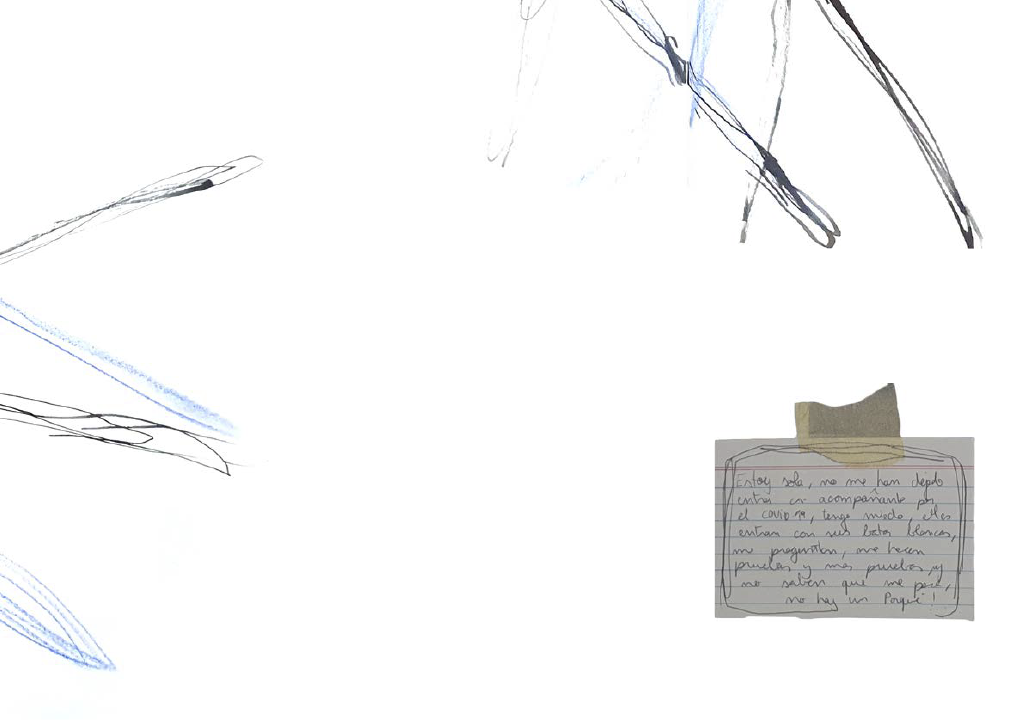 Estoy sola, no me han dejado
entrar con acompañante por
el covid 19, tengo miedo, ellos
entran con sus batas blancas,
me preguntan, me hacen
pruebas y mas pruebas, y
no saben que me pasa,
no hay un Porqué!